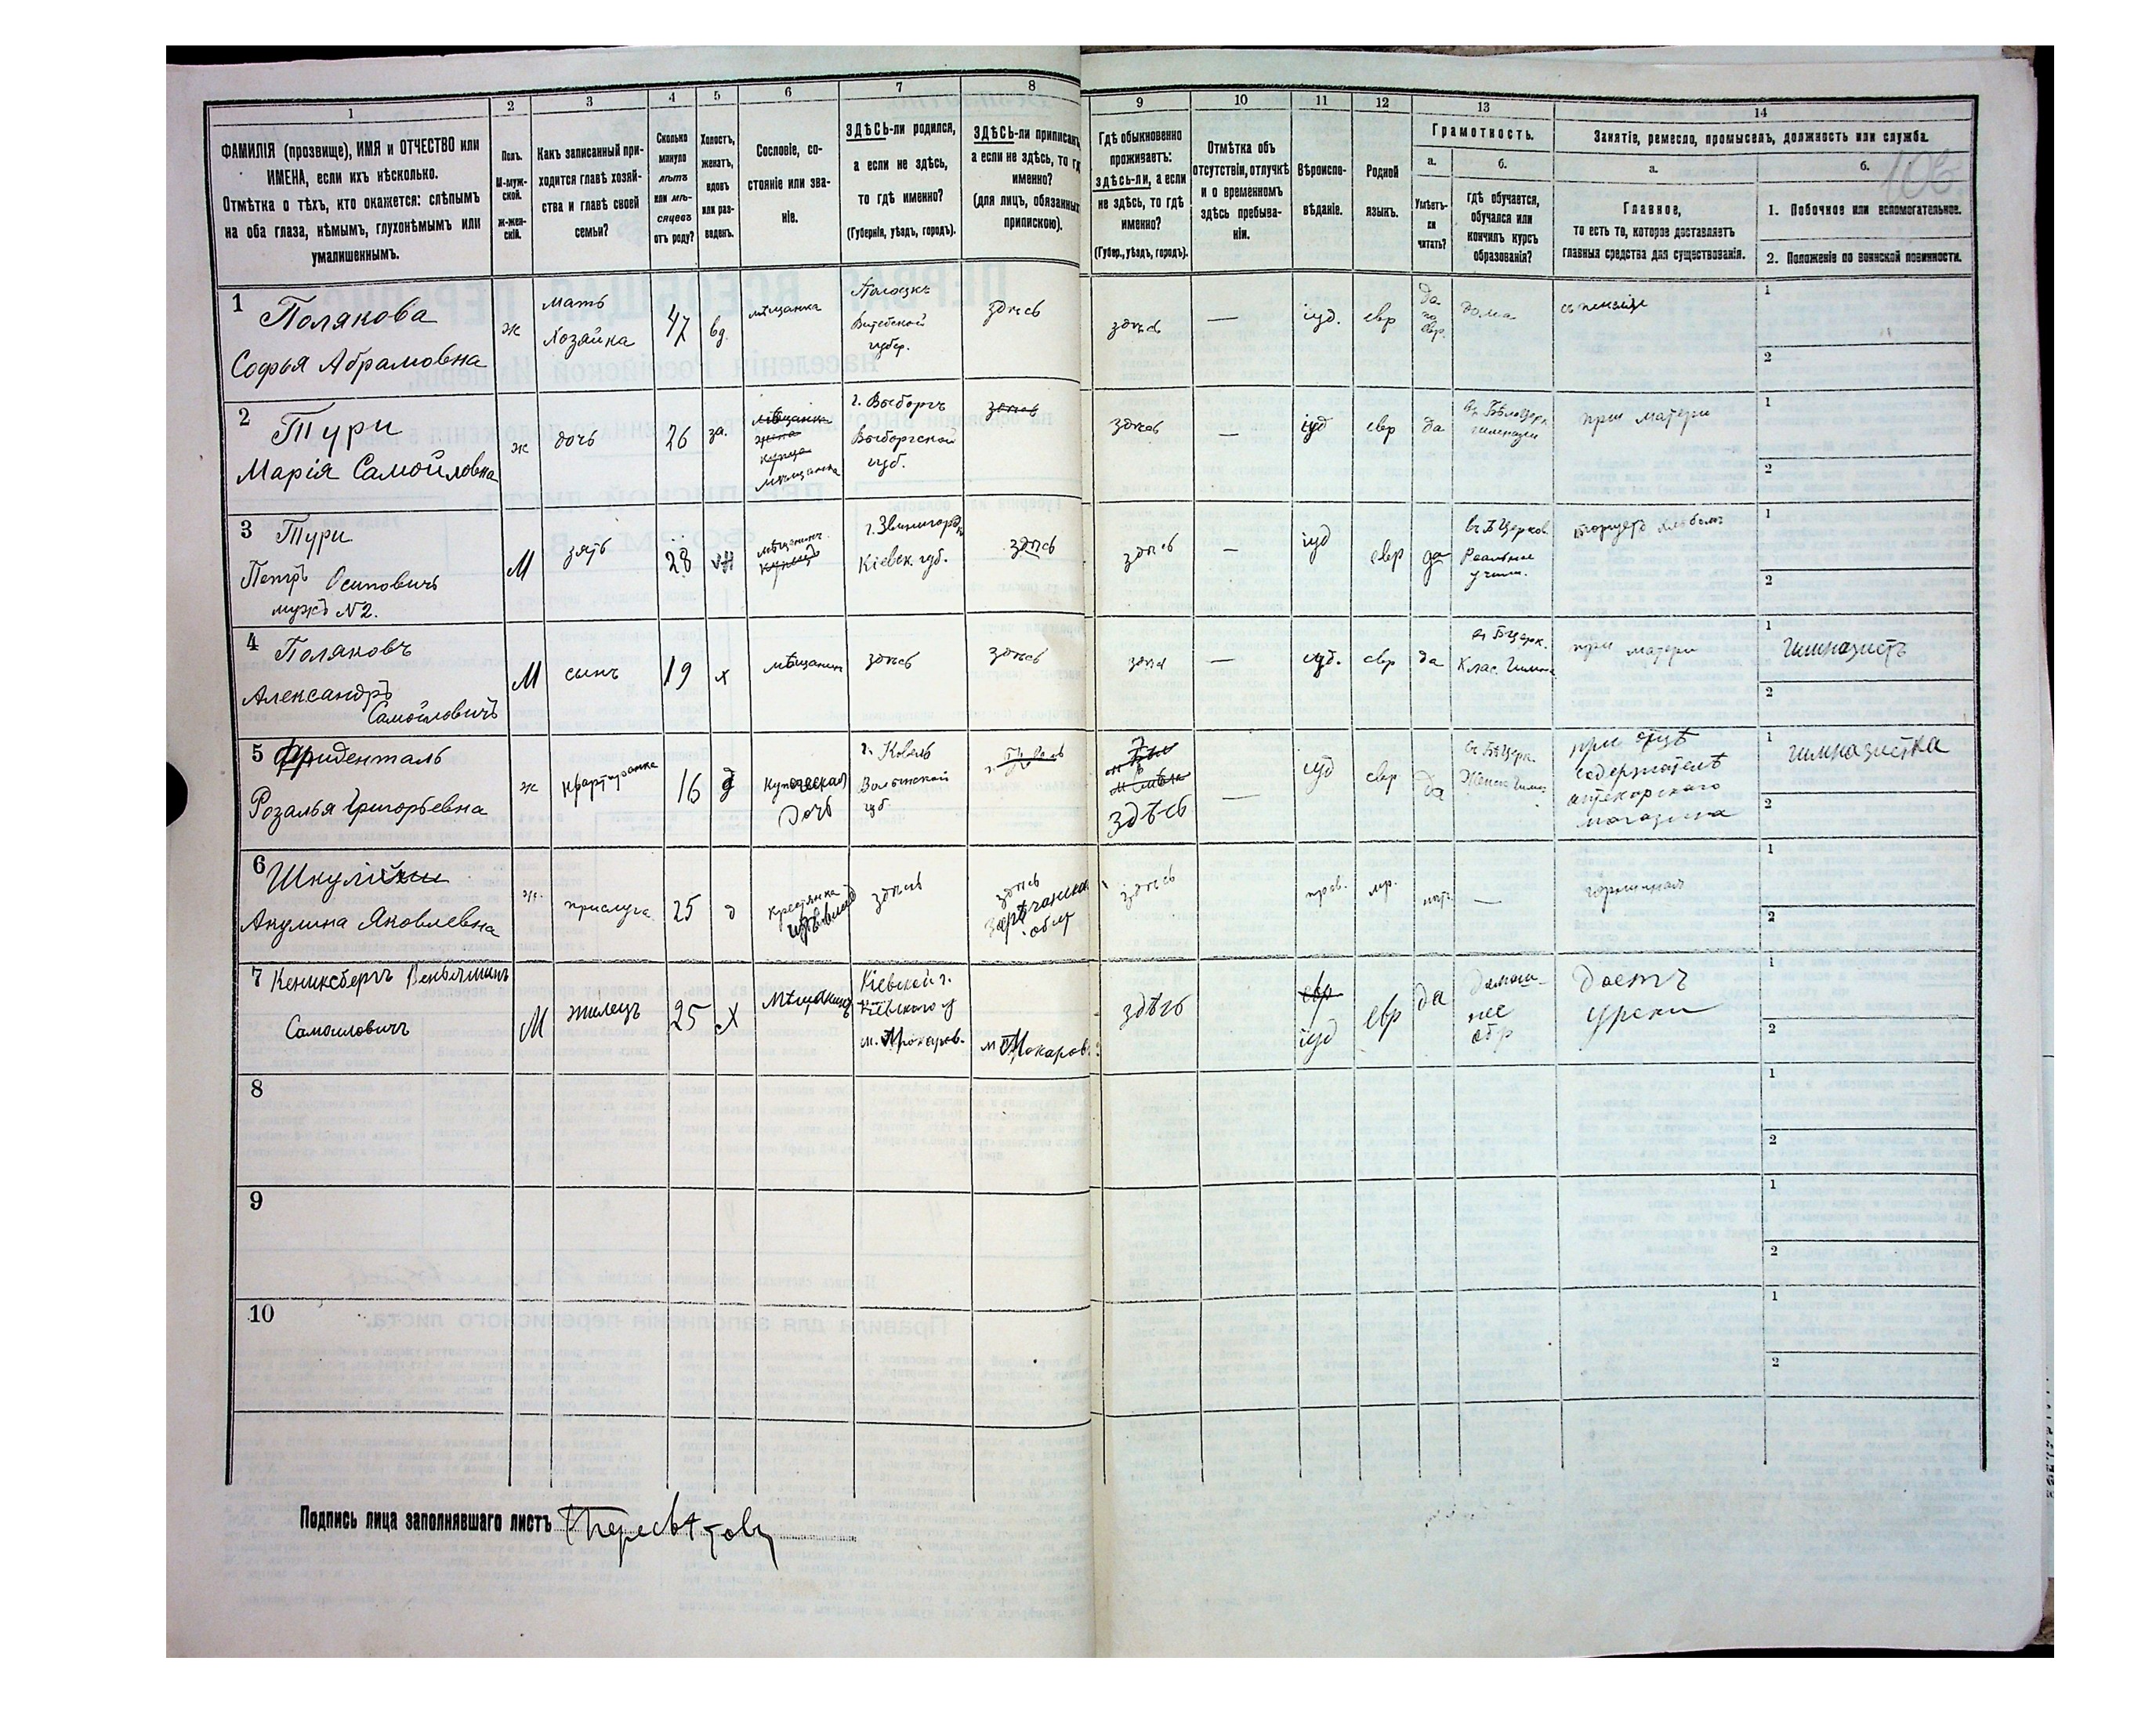 1
2
3
4
5
6
7
8
ФАМИЛІЯ (прозвище), ИМЯ и ОТЧЕСТВО или
ИМЕНА, если ихъ нѣсколько.
Отмѣтка о тѣхъ, кто окажется: слѣпымъ
на оба глаза, нѣмымъ, глухонѣмымъ или
умалишеннымъ.
Полъ.
М-муж-
ской.
Ж-жен-
скій.
Какъ записанный при-
ходится главѣ хозяй-
ства и главѣ своей
семьи?
Сколько
минуло
лѣтъ
или мѣ-
сяцевъ
отъ роду?
Холостъ,
женатъ,
вдовъ
или раз-
веденъ.
Сословіе, со-
стояніе или зва-
ніе.
ЗДѢСЬ-ли родился,
а если не здѣсь,
то гдѣ именно?
(Губернія, уѣздъ, городъ).
ЗДѢСЬ-ли приписанъ,
а если не здѣсь, то гдѣ
именно?
(для лицъ, обязанныхъ
припискою).
9
10
11
12
13
14
Гдѣ обыкновенно
проживаетъ:
здѣсь-ли, а если
не здѣсь, то гдѣ
именно?
(Губер., уѣздъ, городъ).
Отмѣтка объ
отсутствіи, отлучкѣ
и о временномъ
здѣсь пребыва-
ніи.
Вѣроиспо-
вѣданіе.
Родной
языкъ.
Грамотность.
а.
Умѣетъ-
ли
читать?
б.
гдѣ обучается,
обучался или
кончилъ курсъ
образованія?
Занятіе, ремесло, промыселъ, должность или служба.
а.
Главное,
то есть то, которое доставляетъ
главныя средства для существованія.
б.
1. Побочное или вспомогательное.
2. Положеніе по воинской повинности.
1
Полякова
Софья Абрамовна
ж
мать
Хозяйка
47
вд.
мѣщанка
Полоцкъ
Витебской
губер.
здѣсь
здѣсь
—
іуд.
евр
да
по
евр.
дома
1
2
2
Тури
Марія Самойловна
ж
дочь
26
за.
мѣщанка
г. Выборгъ
Выборгской
губ.
здѣсь
здѣсь
—
іуд
евр
да
при матери
1
2
3
Тури
Петръ Осиповичъ
мужъ N2.
М
зять
28
мѣщанинъ
купецъ
г. Звенигородка
Кіевск. губ.
здѣсь
здѣсь
—
іуд
евр
да
въ Б Церков.
Реальное
учил.
торгуетъ хлѣбомъ
1
2
4
Поляковъ
Александръ
Самойловичъ
М
сынъ
19
х
мѣщанинъ
здѣсь
здѣсь
здѣсь
—
іуд.
евр
да
въ БЦерк.
Клас. Гимна
при матери
1
гимназистъ
2
5
Фриденталь
Розалья Григорьевна
ж
квартирантка
16
д
Купеческая
дочь
г. Ковель
Волынской
губ.
здѣсь
—
іуд
евр
да
въ БЦерк.
Женск Гимн
при отцѣ
содержателѣ
аптекарскаго
магазина
1
гимназистка
2
6
Акулина Яковлевна
ж.
прислуга
25
д
крестьянка
здѣсь
здѣсь
здѣсь
прав.
мр.
нѣтъ
—
горничная
1
2
7
Кениксбергъ Веньяминъ
Самоиловичъ
М
жилецъ
25
Х
Мѣщанинъ
Кіевской г.
Кіевскаго у
м. Макаров.
м Макаров
здѣсь
евр
іуд
евр
да
домаш-
нее
обр
Даетъ
уроки
1
2
8
1
2
9
1
2
10
1
2
Подпись лица заполнявшаго листъ